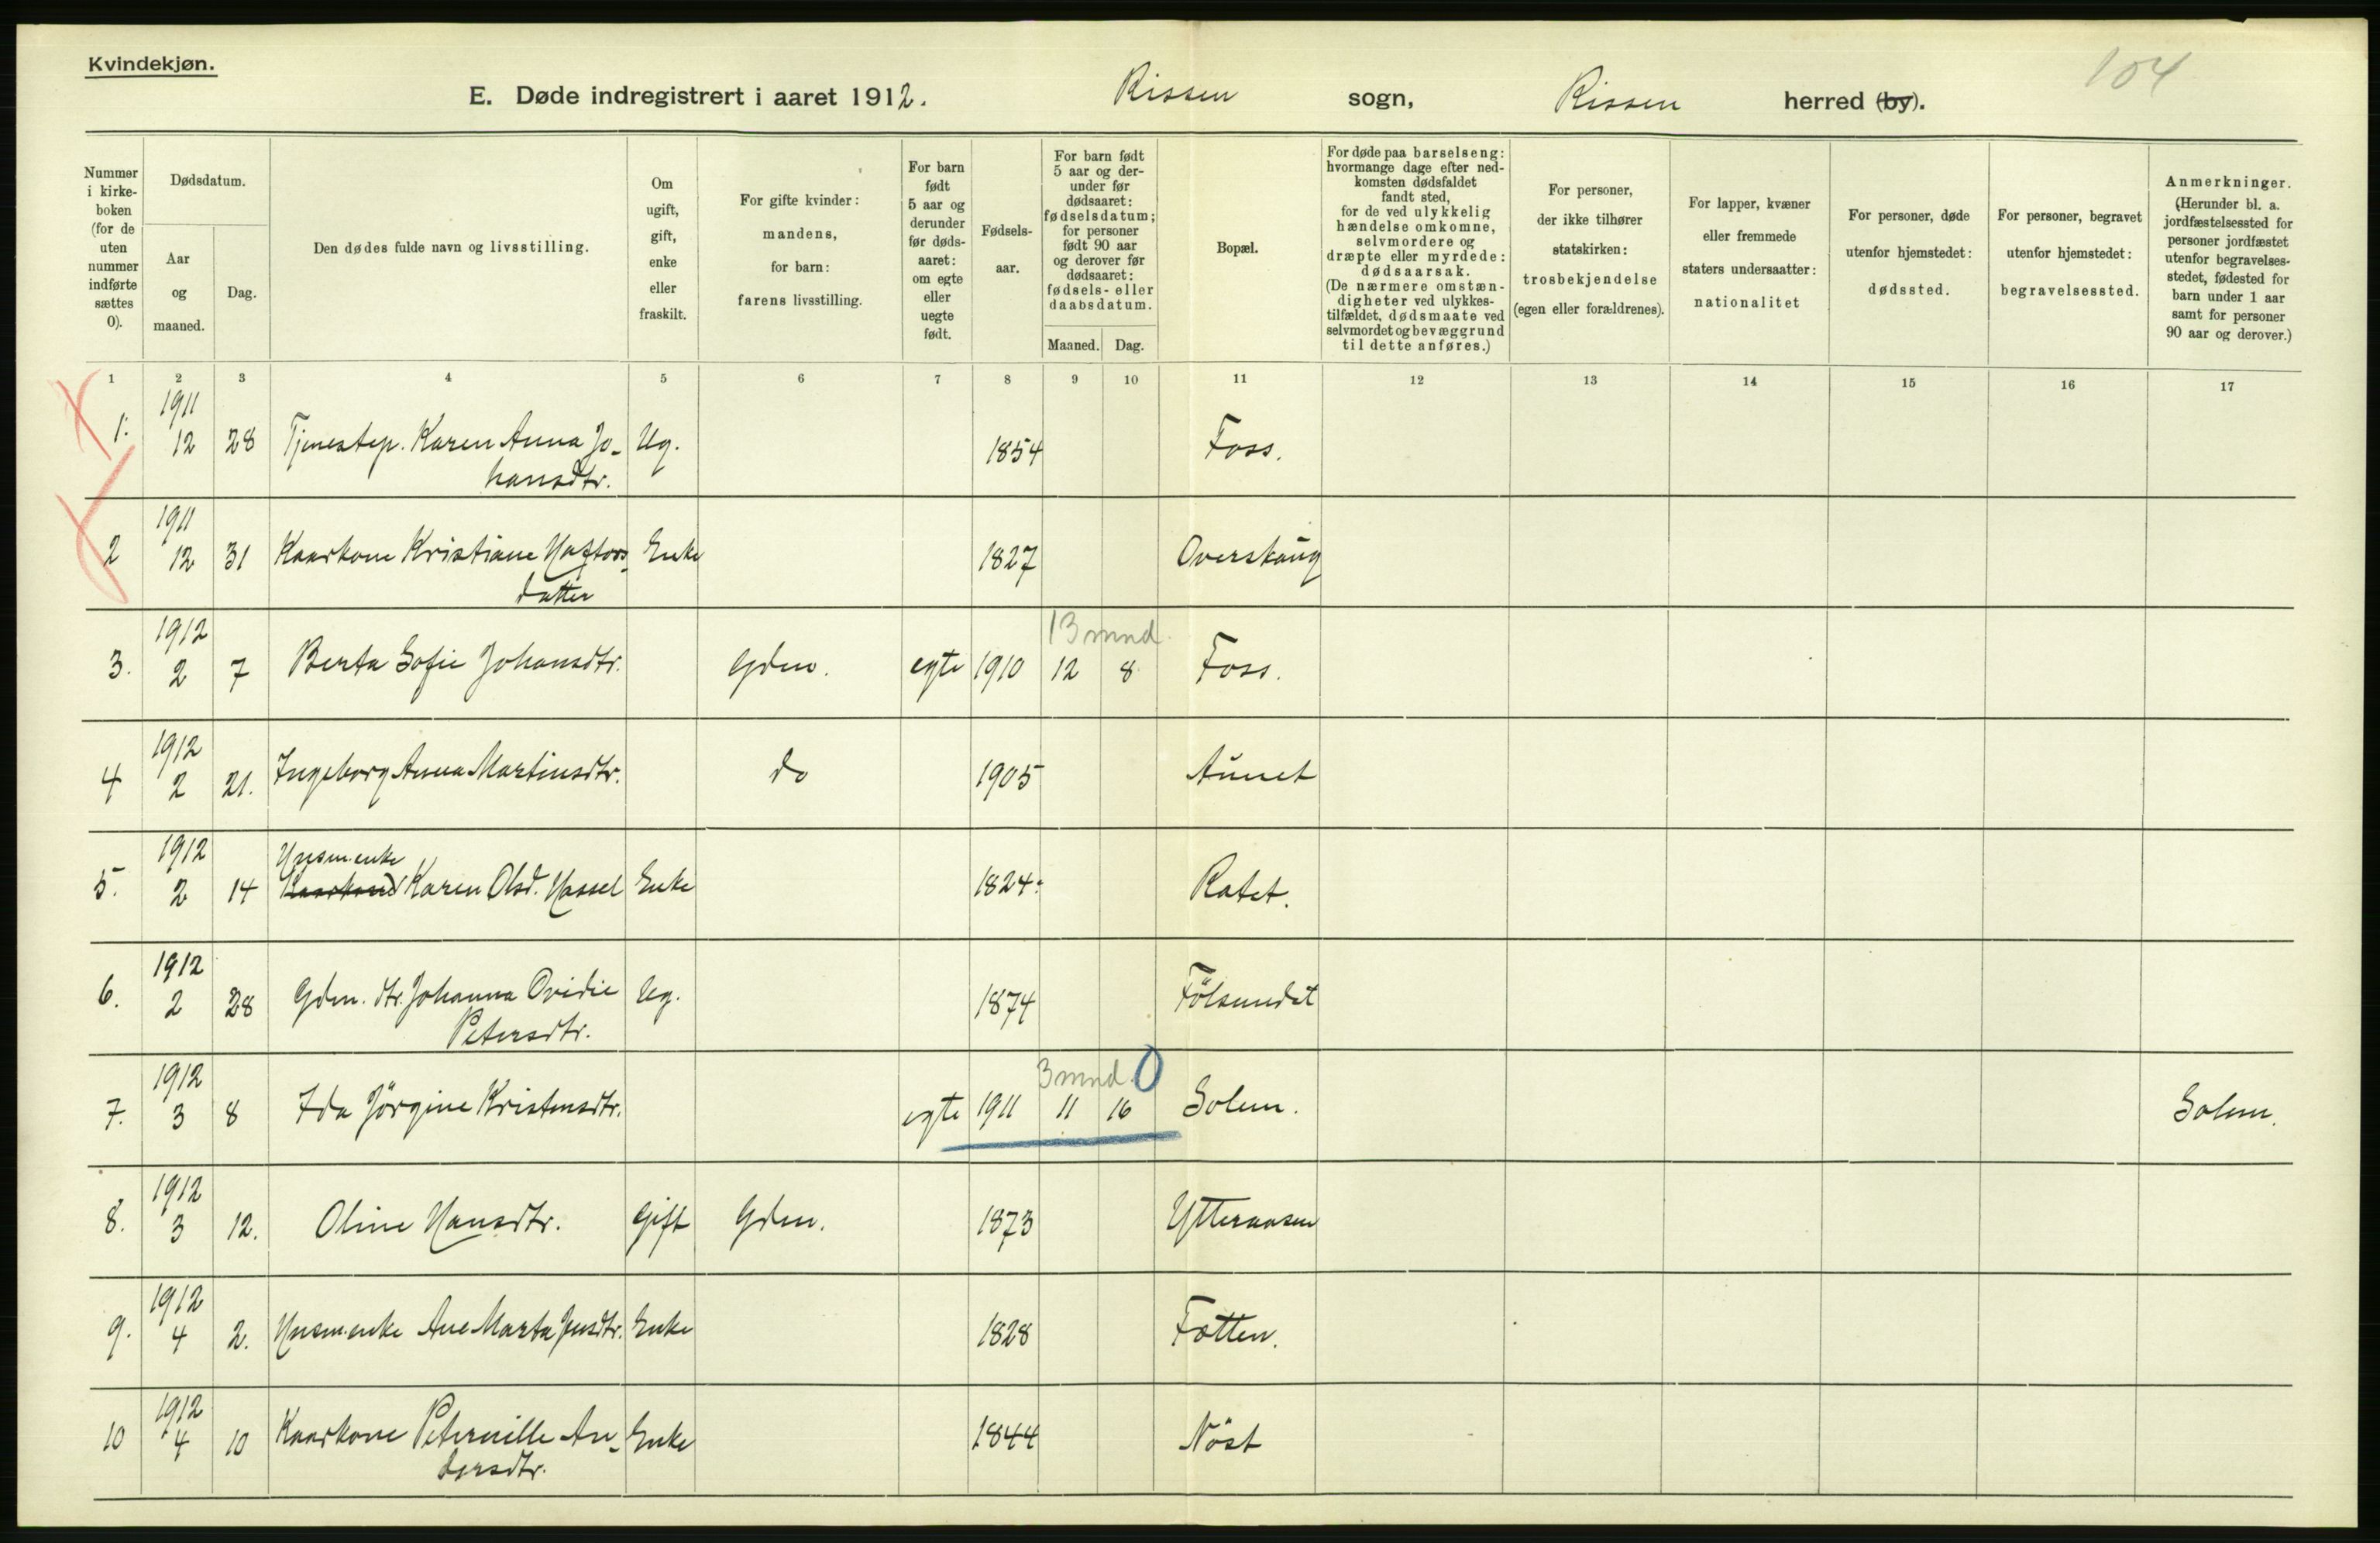 Kvindekjøn.
104
E. Døde indregistrert i aaret 1912. Rissen sogn, Rissen herred (by).
Nummer i kirke-boken (for de uten nummer indførte sættes 0).
Dødsdatum.
Aar og maaned.
Dag.
Den dødes fulde navn og livsstilling.
Om ugift, gift, enke eller fraskilt.
For gifte kvinder: mandens, for barn: farens livsstilling.
For barn født 5 aar og derunder før døds-aaret: om egte eller uegte født.
Fødsels-aar.
For barn født 5 aar og der-under før dødsaaret: fødselsdatum; for personer født 90 aar og derover før dødsaaret: fødsels- eller daabsdatum.
Maaned. Dag.
Bopæl.
For døde paa barselseng: hvormange dage efter ned-komsten dødsfaldet fandt sted, for de ved ulykkelig hændelse omkomne, selvmordere og dræpte eller myrdede: dødsaarsak. (De nærmere omstæn-digheter ved ulykkes-tilfældet, dødsmaate ved selvmordet og bevæggrund til dette anføres.)
For personer, der ikke tilhører statskirken: trosbekjendelse (egen eller forældrenes).
For lapper, kvæner eller fremmede staters undersaatter: nationalitet
For personer, døde utenfor hjemstedet: dødssted.
For personer, begravet utenfor hjemstedet: begravelsessted.
Anmerkninger. (Herunder bl. a. jordfæstelsessted for personer jordfæstet utenfor begravelses-stedet, fødested for barn under 1 aar samt for personer 90 aar og derover.)
1 2 3 4 5 6 7 8 9 10 11 12 13 14 15 16 17
1911
1. 12 28 Tjenestep. Karen Anna Jo- Ug. 1854 Foss.
hansdtr.
1911
2 12 31 Kaarkone Kristiane Haftors- Enke 1827 Overskaug
datter
1912 13 mnd.
3. 2 7 Berta Sofie Johansdtr. Gdm. egte 1910 12 8 Foss.
1912
4 2 21. Ingeborg Anna Martinsdtr. do 1905 Aunet
1912 Husm.enke
5. 2 14 Kaarkone Karen Olsd. Hassel Enke 1824. Ratet.
1912
6. 2 28 Gdm. dtr. Johanna Ovidie Ug. 1874 Fölsundet
Petersdtr.
1912 3 mnd. 0
7. 3 8 Ida Jörgine Kristensdtr. egte 1911 11 16 Solem. Solem.
1912
8. 3 12. Oline Hansdtr. Gift Gdm. 1873 Ytteraasen
1912
9. 4 2. Husm.enke Ane Marta Jensdtr. Enke 1828 Fætten.
1912
10 4 10 Kaarkone Peternille An- Enke 1844 Nöst
dersdtr.